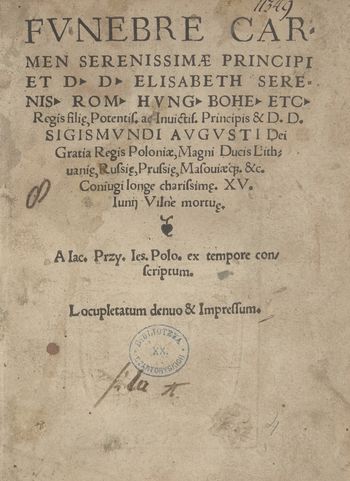 11349
FVNEBRE CAR-
MEN SERENISSIMÆ PRINCIPI
ET D▸ D▸ ELISABETH SERE-
NIS▸ ROM▸ HVNG▸ BOHE▸ ETC▸
Regis filię, Potentiſ. ac Inuictiſ. Principis & D. D.
SIGISMVNDI AVGVSTI Dei
Gratia Regis Poloniæ, Magni Ducis Lith-
vanię, Ruſsię, Pruſsię, Maſouiæq́. &c.
Coniugi longe chariſsimę. XV.
Iunij Vilnè mortuę.
8
A Iac. Przy. Ies. Polo. ex tempore con-
scriptum.
Locupletatum denuo & Impreſſum.
BIBLIOTEKA
XX.
CZARTORYSKICH